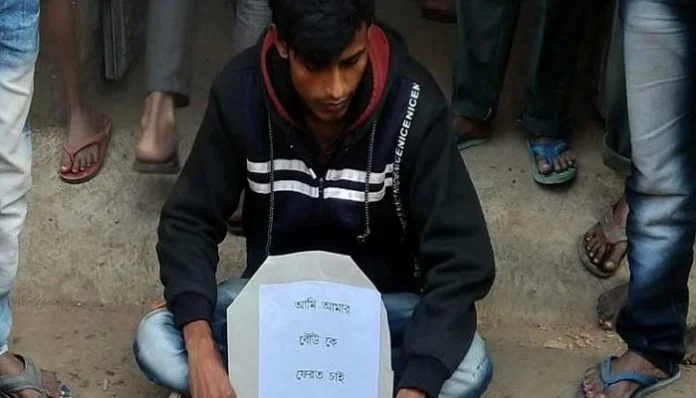 NICENICENICEN
আমি আমার
বৌউ কে
ফেরত চাই